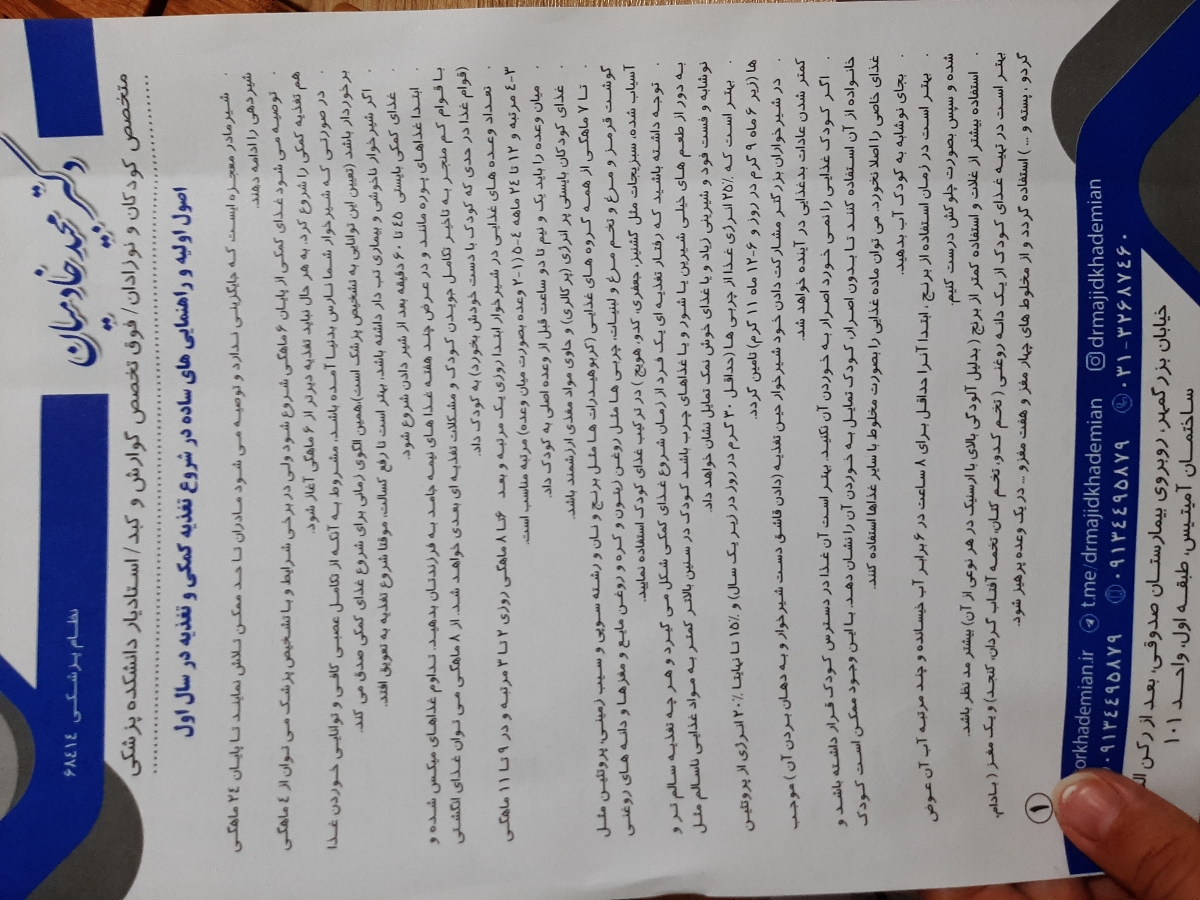 دکتر مجید خادمیان
نظام پزشکی ۶۸۴۱۴
متخصص کودکان و نوزادان/ فوق تخصص گوارش و کبد/ استادیار دانشکده پزشکی
اصول اولیه و راهنمایی های ساده در شروع تغذیه کمکی و تغذیه در سال اول
. شیرمادر معجزه ایست که جایگزینی ندارد و توصیه می شود مادران تا حد ممکن تلاش نمایند تا پایان ۲۴ ماهگی
شیردهی را ادامه دهند.
. توصیه می شود غذای کمکی از پایان ۶ ماهگی شروع شود ولی در برخی شرایط و با تشخیص پزشک می توان از ۴ ماهگی
هم تغذیه کمکی را شروع کرد. به هر حال نباید تغذیه دیرتر از ۶ ماهگی آغاز شود.
. در صورتی که شیرخوار شما نارس بدنیا آمده باشد، مشروط به آنکه از تکامل عصبی کافی و توانایی خوردن غذا
برخوردار باشد (تعیین این توانایی به تشخیص پزشک است)همین الگوی زمانی برای شروع غذای کمکی صدق می کند.
. اگر شیرخوار ناخوشی و بیماری تب دار داشته باشد، بهتر است تا رفع کسالت، موقتا شروع تغذیه به تعویق افتد.
. غذای کمکی بایستی ۴۵ تا ۶۰ دقیقه بعد از شیر دادن شروع شود.
. ابتدا غذاهای پوره مانند و در عرض چند هفته غذا های نیمه جامد به فرزندتان بدهید. تداوم غذاهای میکس شده و
با قوام کم منجر به تاخیر تکامل جویدن کودک و مشکلات تغذیه ای بعدی خواهد شد. از ۸ ماهگی می توان غذای انگشتی
(قوام غذا در حدی که کودک با دست خودش بخورد) به کودک داد.
. تعداد وعده های غذایی در شیرخوار ابتدا روزی یک مرتبه و بعد ۶ تا ۸ ماهگی روزی ۲ تا ۳ مرتبه و در ۹ تا ۱۱ ماهگی
۳-۴ مرتبه و ۱۲ تا ۲۴ ماهه ۴-۵ (۱-۲ وعده بصورت میان وعده) مرتبه مناسب است.
. میان وعده را باید یک و نیم تا دو ساعت قبل از وعده اصلی به کودک داد.
. غذای کودکان بایستی پر انرژی (پر کالری) و حاوی مواد مغذی ارزشمند باشد.
. تا ۷ ماهگی از همه گروه های غذایی (کربوهیدرات ها مثل برنج و نان و رشته سوپی و سیب زمینی، پروتئین مثل
گوشت قرمز و مرغ و تخم مرغ و لبنیات، چربی ها مثل روغن زیتون و کره و روغن مایع و مغزها و دانه های روغنی
آسیاب شده، سبزیجات مثل گشنیز، جعفری، کدو، هویج ) در ترکیب غذای کودک استفاده نمایید.
. توجه داشته باشید که رفتار تغذیه ای یک فرد از زمان شروع غذای کمکی شکل می گیرد و هر چه تغذیه سالم تر و
به دور از طعم های خیلی شیرین یا شور و یا غذاهای چرب باشد کودک در سنین بالاتر کمتر به مواد غذایی ناسالم مثل
نوشابه و فست فود و شیرینی زیاد و یا غذای خوش نمک تمایل نشان خواهد داد.
. بهتر است که ۲۵٪ انرژی غذا از چربی ها (حداقل ۳۰ گرم در روز در زیر یک سال) و ۱۵٪ تا نهایتا ۲۰٪ انرژی از پروتئین
ها (زیر ۶ ماه ۹ گرم در روز و ۶-۱۲ ماه ۱۱ گرم) تامین گردد.
. در شیرخواران بزرگتر مشارکت دادن خود شیرخوار حین تغذیه (دادن قاشق دست شیرخوار و به دهان بردن آن ) موجب
کمتر شدن عادات بدغذایی در آینده خواهد شد.
. اگر کودک غذایی را نمی خورد اصرار به خوردن آن نکنید. بهتر است آن غذا در دسترس کودک قرار داشته باشد و
خانواده از آن استفاده کنند تا بدون اصرار، کودک تمایل به خوردن آن را نشان دهد. با این وجود ممکن است کودک
غذای خاصی را اصلا نخورد، می توان ماده غذایی را بصورت مخلوط با سایر غذاها استفاده کنند.
. بجای نوشابه به کودک آب بدهید.
. بهتر است در زمان استفاده از برنج، ابتدا آنرا حداقل برای ۸ ساعت در ۶ برابر آب خیسانده و چند مرتبه آب آن عوض
شده و سپس بصورت چلوکش درست کنیم.
. استفاده بیشتر از غلات و استفاده کمتر از برنج ( بدلیل آلودگی بالای با ارسنیک در هر نوعی از آن) بیشتر مد نظر باشد.
. بهتر است در تهیه غذای کودک از یک دانه روغنی ( تخم کدو، تخم کتان، تخمه آفتاب گردان، کنجد) و یک مغز ( بادام،
گردو، پسته و ...) استفاده گردد و از مخلوط های چهار مغز و هفت مغز و ... در یک وعده پرهیز شود.
۱
orkhademian.ir t.me/drmajidkhademian drmajidkhademian
۰۹۱۳۴۴۹۵۸۷۹ ۰۹۱۳۴۴۹۵۸۷۹ ۰۳۱-۳۲۶۸۷۴۶۰
خیابان بزرگمهر، روبروی بیمارستان صدوقی، بعد از رکن
ساختمان آمیتیس، طبقه اول، واحد ۱۰۱